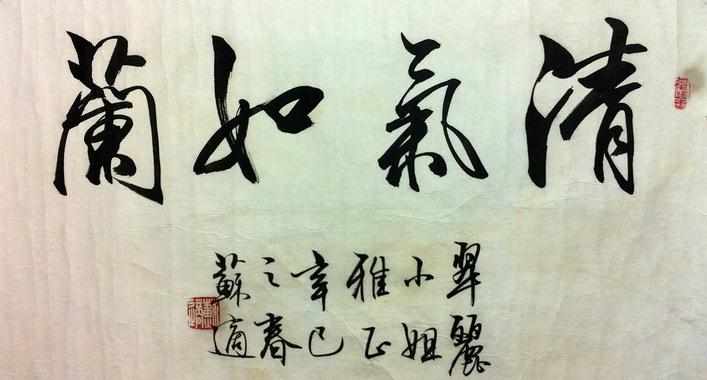 清氣如蘭
翠麗
小姐
雅正
辛巳
之春
蘇適